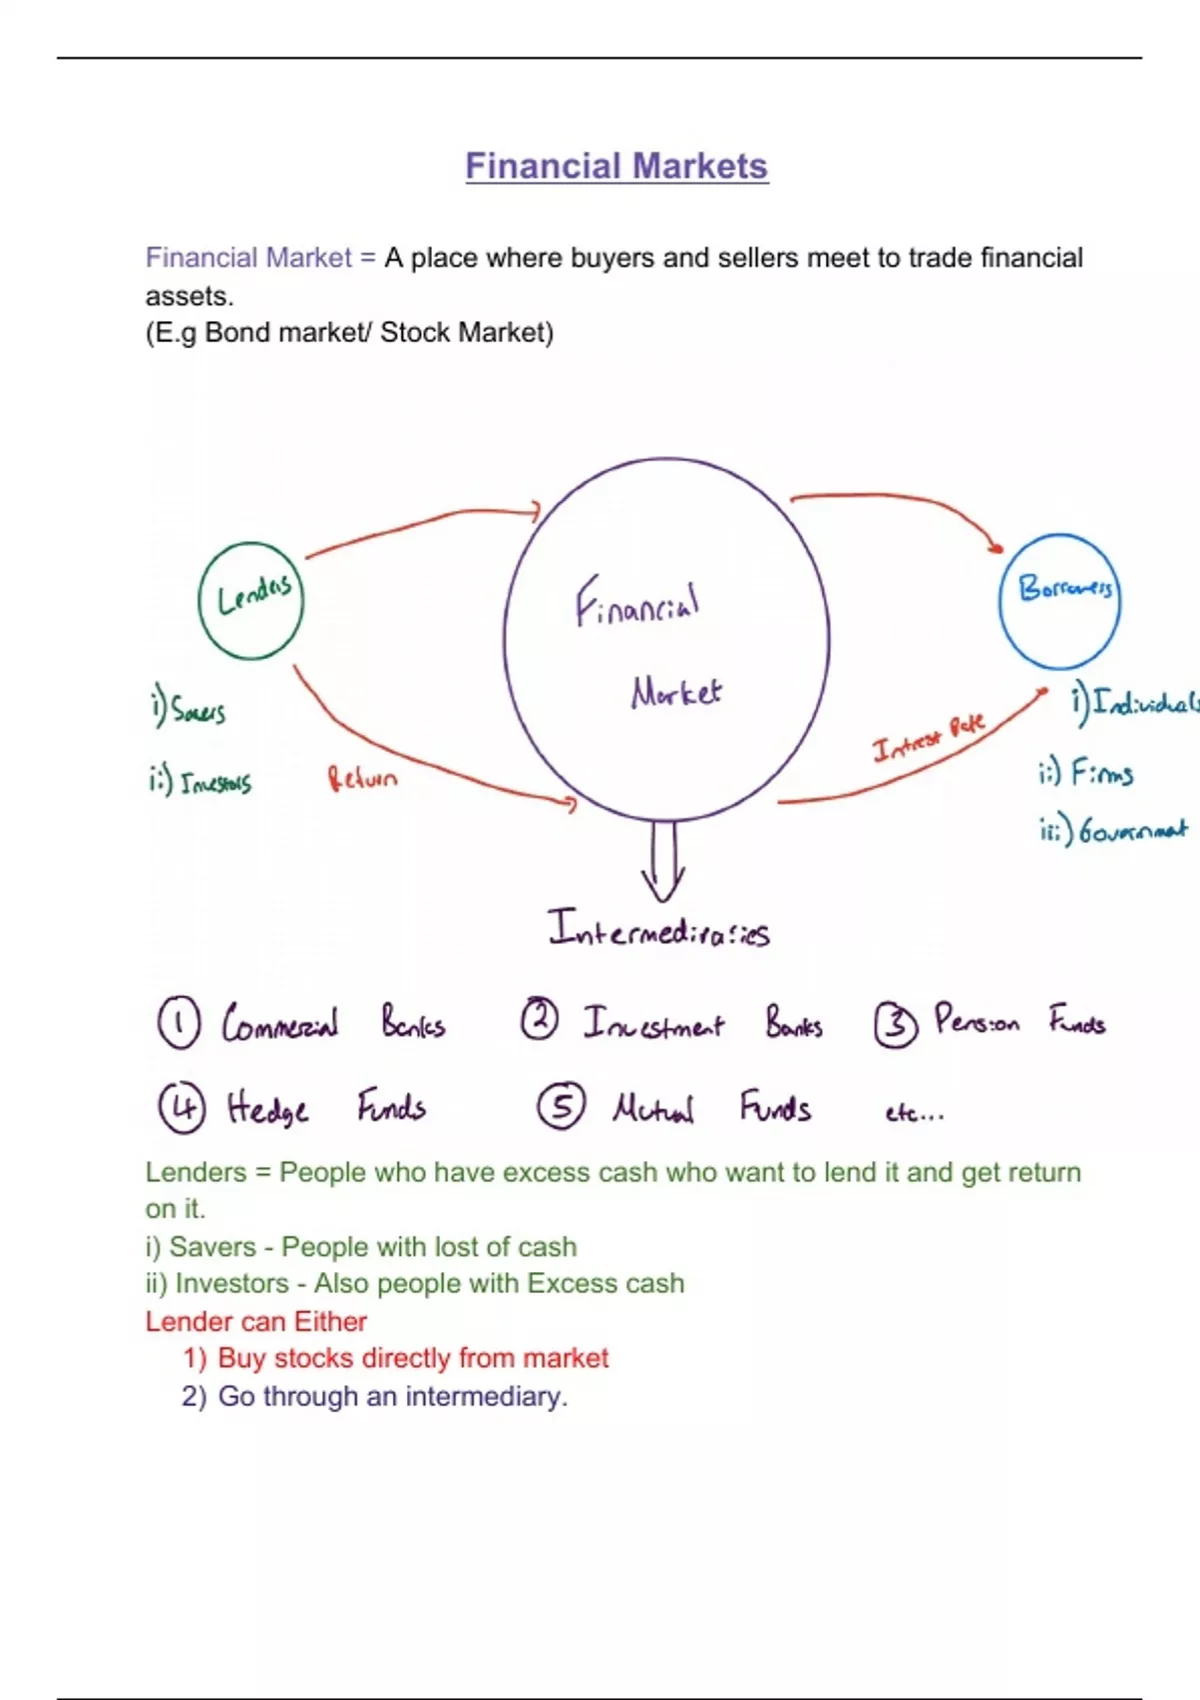 Financial Markets
Financial Market = A place where buyers and sellers meet to trade financial
assets.
(E.g Bond market/ Stock Market)
Lenders
Financial
Market
Borrowers
i) Savers
ii) Investors
Return
Intrest Rate
i) Individuals
ii) Firms
iii) Government
Intermediraties
1 Commercial Banks 2 Investment Banks 3 Pension Funds
4 Hedge Funds 5 Mutual Funds etc...
Lenders = People who have excess cash who want to lend it and get return
on it.
i) Savers - People with lost of cash
ii) Investors - Also people with Excess cash
Lender can Either
1) Buy stocks directly from market
2) Go through an intermediary.